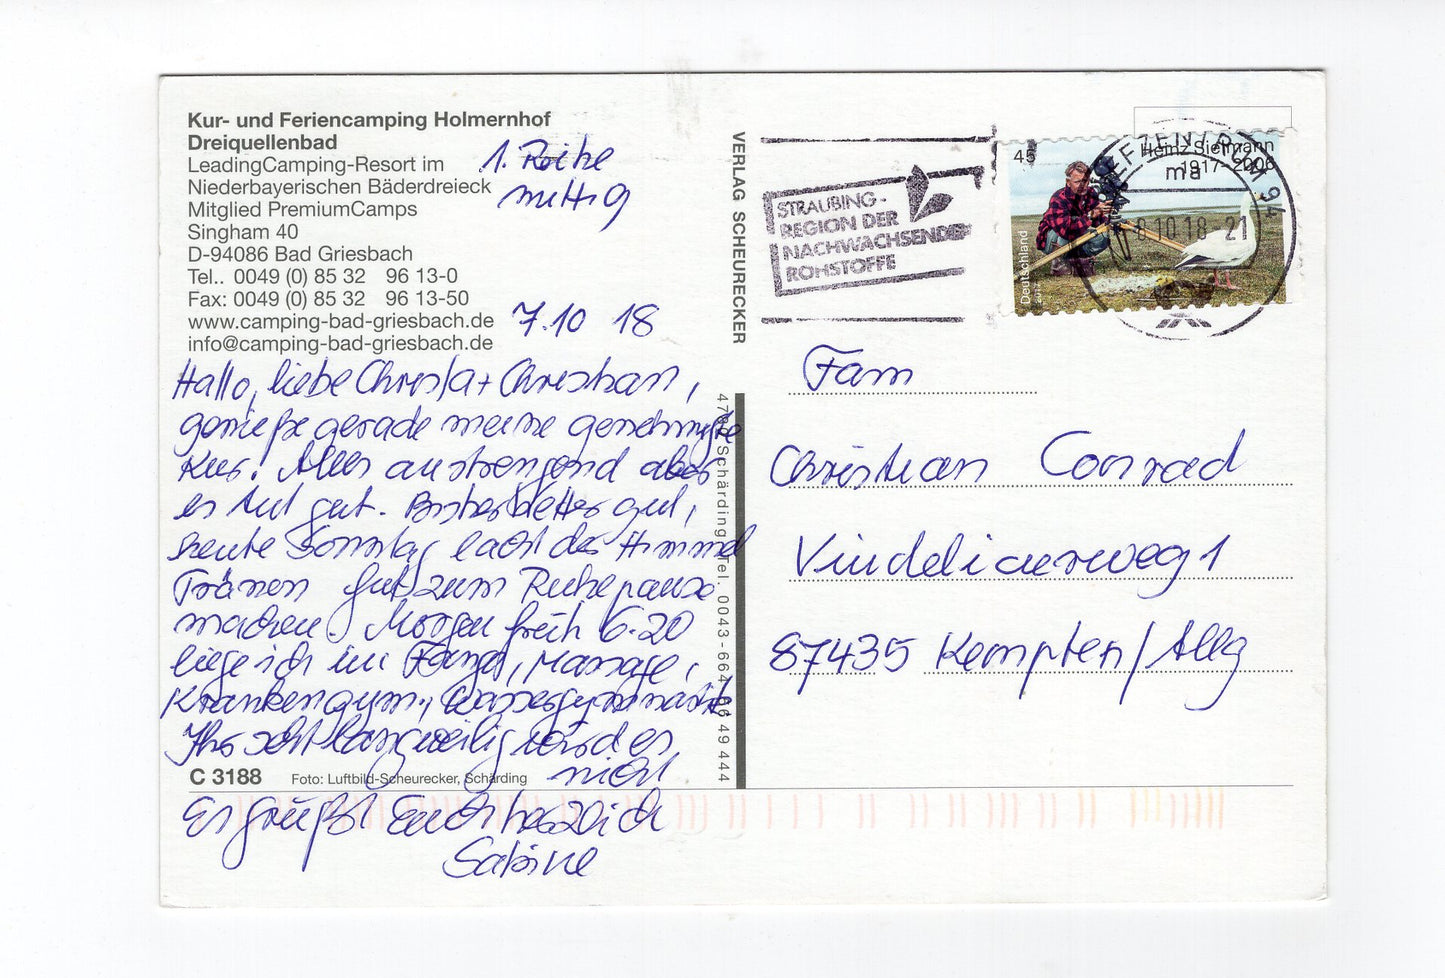 Kur- und Feriencamping Holmernhof
Dreiquellenbad
LeadingCamping-Resort im
Niederbayerischen Bäderdreieck
Mitglied PremiumCamps
Singham 40
D-94086 Bad Griesbach
Tel.. 0049 (0) 85 32 96 13-0
Fax: 0049 (0) 85 32 96 13-50
www.camping-bad-griesbach.de
info@camping-bad-griesbach.de
1. Reihe
mittig
7.10 18
Hallo, liebe Christa + Christian,
genieße gerade meine genehmigte
Kur. Alles anstrengend aber
es tut gut. Bisher Wetter gut,
heute Sonntag lacht der Himmel
Tränen gut zum Ruhepause
machen. Morgen früh 6.20
liege ich im Fango, Massage,
Krankengym., Wassergymnastik
Ihr seht langweilig wird es
nicht
C 3188 Foto: Luftbild-Scheurecker, Schärding
Es grüßt Euch herzlich
Sabine
VERLAG SCHEURECKER
Schärding Tel. 0043-664 49 444
STRAUBING -
REGION DER
NACHWACHSENDEN
ROHSTOFFE
45
Heinz Sielmann
1917-2006
Deutschland
BRIEFZENTRUM 94
ma
8.10.18-21
Fam
Christian Conrad
Vindelicerweg 1
87435 Kempten/Allg